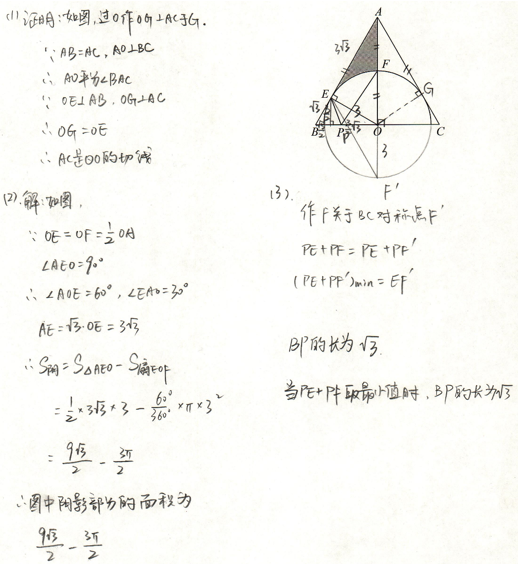 (1) 证明:如图,过O作OG⊥AC于G.
∵ AB=AC, AO⊥BC
∴ AO平分∠BAC
∵ OE⊥AB, OG⊥AC
∴ OG=OE
∴ AC是⊙O的切线
(2).解:如图,
∵ OE=OF=½OA
∠AEO=90°
∴ ∠AOE=60°, ∠EAO=30°
AE=√3·OE=3√3
∴ S阴=S△AEO-S扇EOF
=½×3√3×3-60°/360°×π×3²
=9√3/2-3π/2
∴图中阴影部分的面积为
9√3/2-3π/2
A
3√3
F
E
G
√3
3
B
P
O
C
3
F'
(3).
作F关于BC对称点F'
PE+PF=PE+PF'
(PE+PF')min=EF'
BP的长为√3.
当PE+PF取最小值时,BP的长为√3